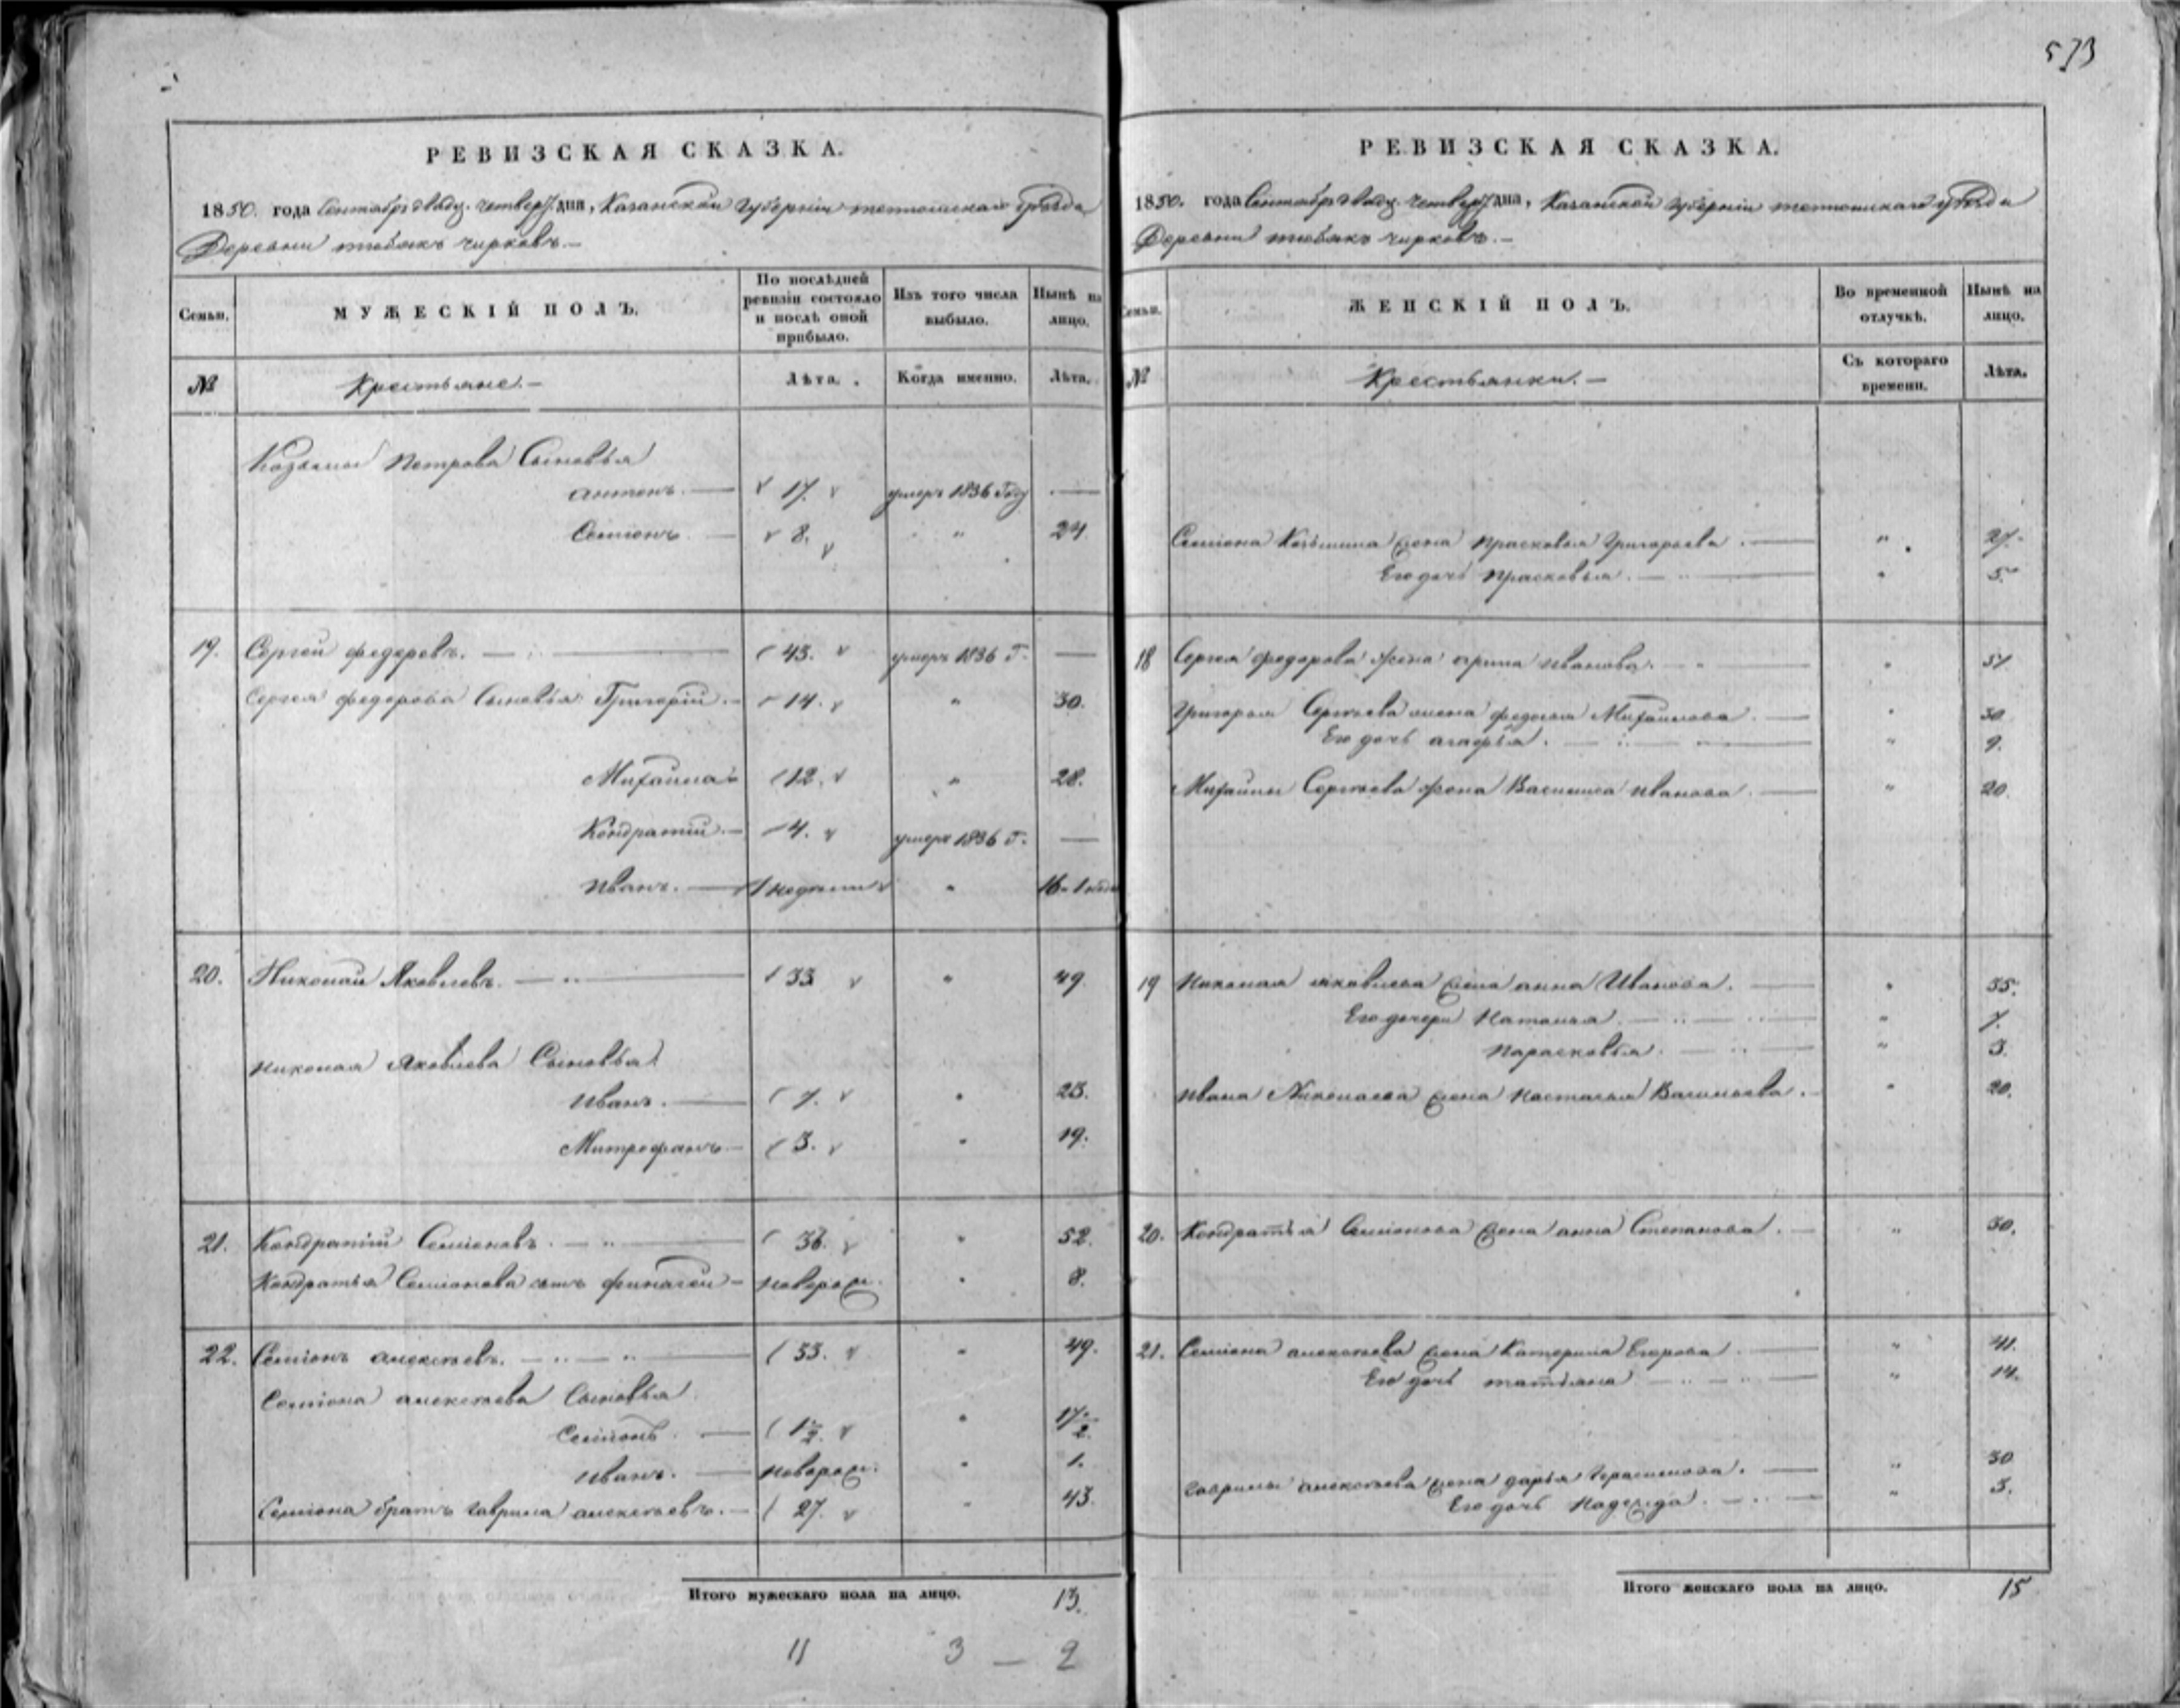 573
РЕВИЗСКАЯ СКАЗКА.
1850. года Сентября двадц. четверт. дня, Казанской Губернии тетюшскаго уѣзда
Деревни тюбякъ чирковъ.—
Семьи. МУЖЕСКІЙ ПОЛЪ. По послѣдней ревизіи состояло и послѣ оной прибыло. Изъ того числа выбыло. Нынѣ на лицо.
№ Крестьяне.— Лѣта. Когда именно. Лѣта.
Козьмы Петрова Сыновья
антонъ.— 17. умеръ 1836 году —
Семионъ 8. " 24
19. Сергей федоровъ.— 43. умеръ 1836 г. —
Сергея федорова Сыновья Григорій.— 14. " 30.
Михайла 12. " 28.
Кондратій.— 4. умеръ 1836 г. —
Иванъ.— 1 недели " 16-1
20. Николай Яковлевъ.— 33 " 49.
Николая Яковлева Сыновья
Иванъ.— 7. " 23.
Митрофанъ— 3. " 19.
21. Кондратій Семионовъ.— 36. " 52.
Кондратья Семионова сынъ— новорож. " 8.
22. Семионъ алексѣевъ.— 33. " 49.
Семиона алексѣева Сыновья
Семионъ.— 1 1/2. " 17 1/2
Иванъ.— новорож. " 1.
Семиона братъ гаврила алексѣевъ.— 27. " 43.
Итого мужескаго пола на лицо. 13.
11 3 — 2
РЕВИЗСКАЯ СКАЗКА.
1850. года Сентября двадц. четверт. дня, Казанской Губернии тетюшскаго уѣзда
Деревни тюбякъ чирковъ.—
Семьи. ЖЕНСКІЙ ПОЛЪ. Во временной отлучкѣ. Нынѣ на лицо.
№ Крестьянки.— Съ котораго времени. Лѣта.
Семиона Козьмина жена Прасковья Григорьева.— " 27.
Его дочь Прасковья.— " 5.
18 Сергея федорова жена ирина иванова.— " 57
Григорья Сергѣева жена федосья Михайлова.— " 30.
Его дочь агафья.— " 9.
Михайлы Сергѣева жена Василиса иванова.— " 20.
19 Николая яковлева жена анна Иванова.— " 55.
Его дочери Наталья.— " 7.
Парасковья.— " 3.
Ивана Николаева жена Настасья Васильева.— " 20.
20. Кондратья Семионова жена анна Степанова.— " 50.
21. Семиона алексѣева жена Катерина Егорова.— " 41.
Его дочь татьяна.— " 14.
гаврилы алексѣева жена дарья Герасимова.— " 30
Его дочь Надежда.— " 3.
Итого женскаго пола на лицо. 15